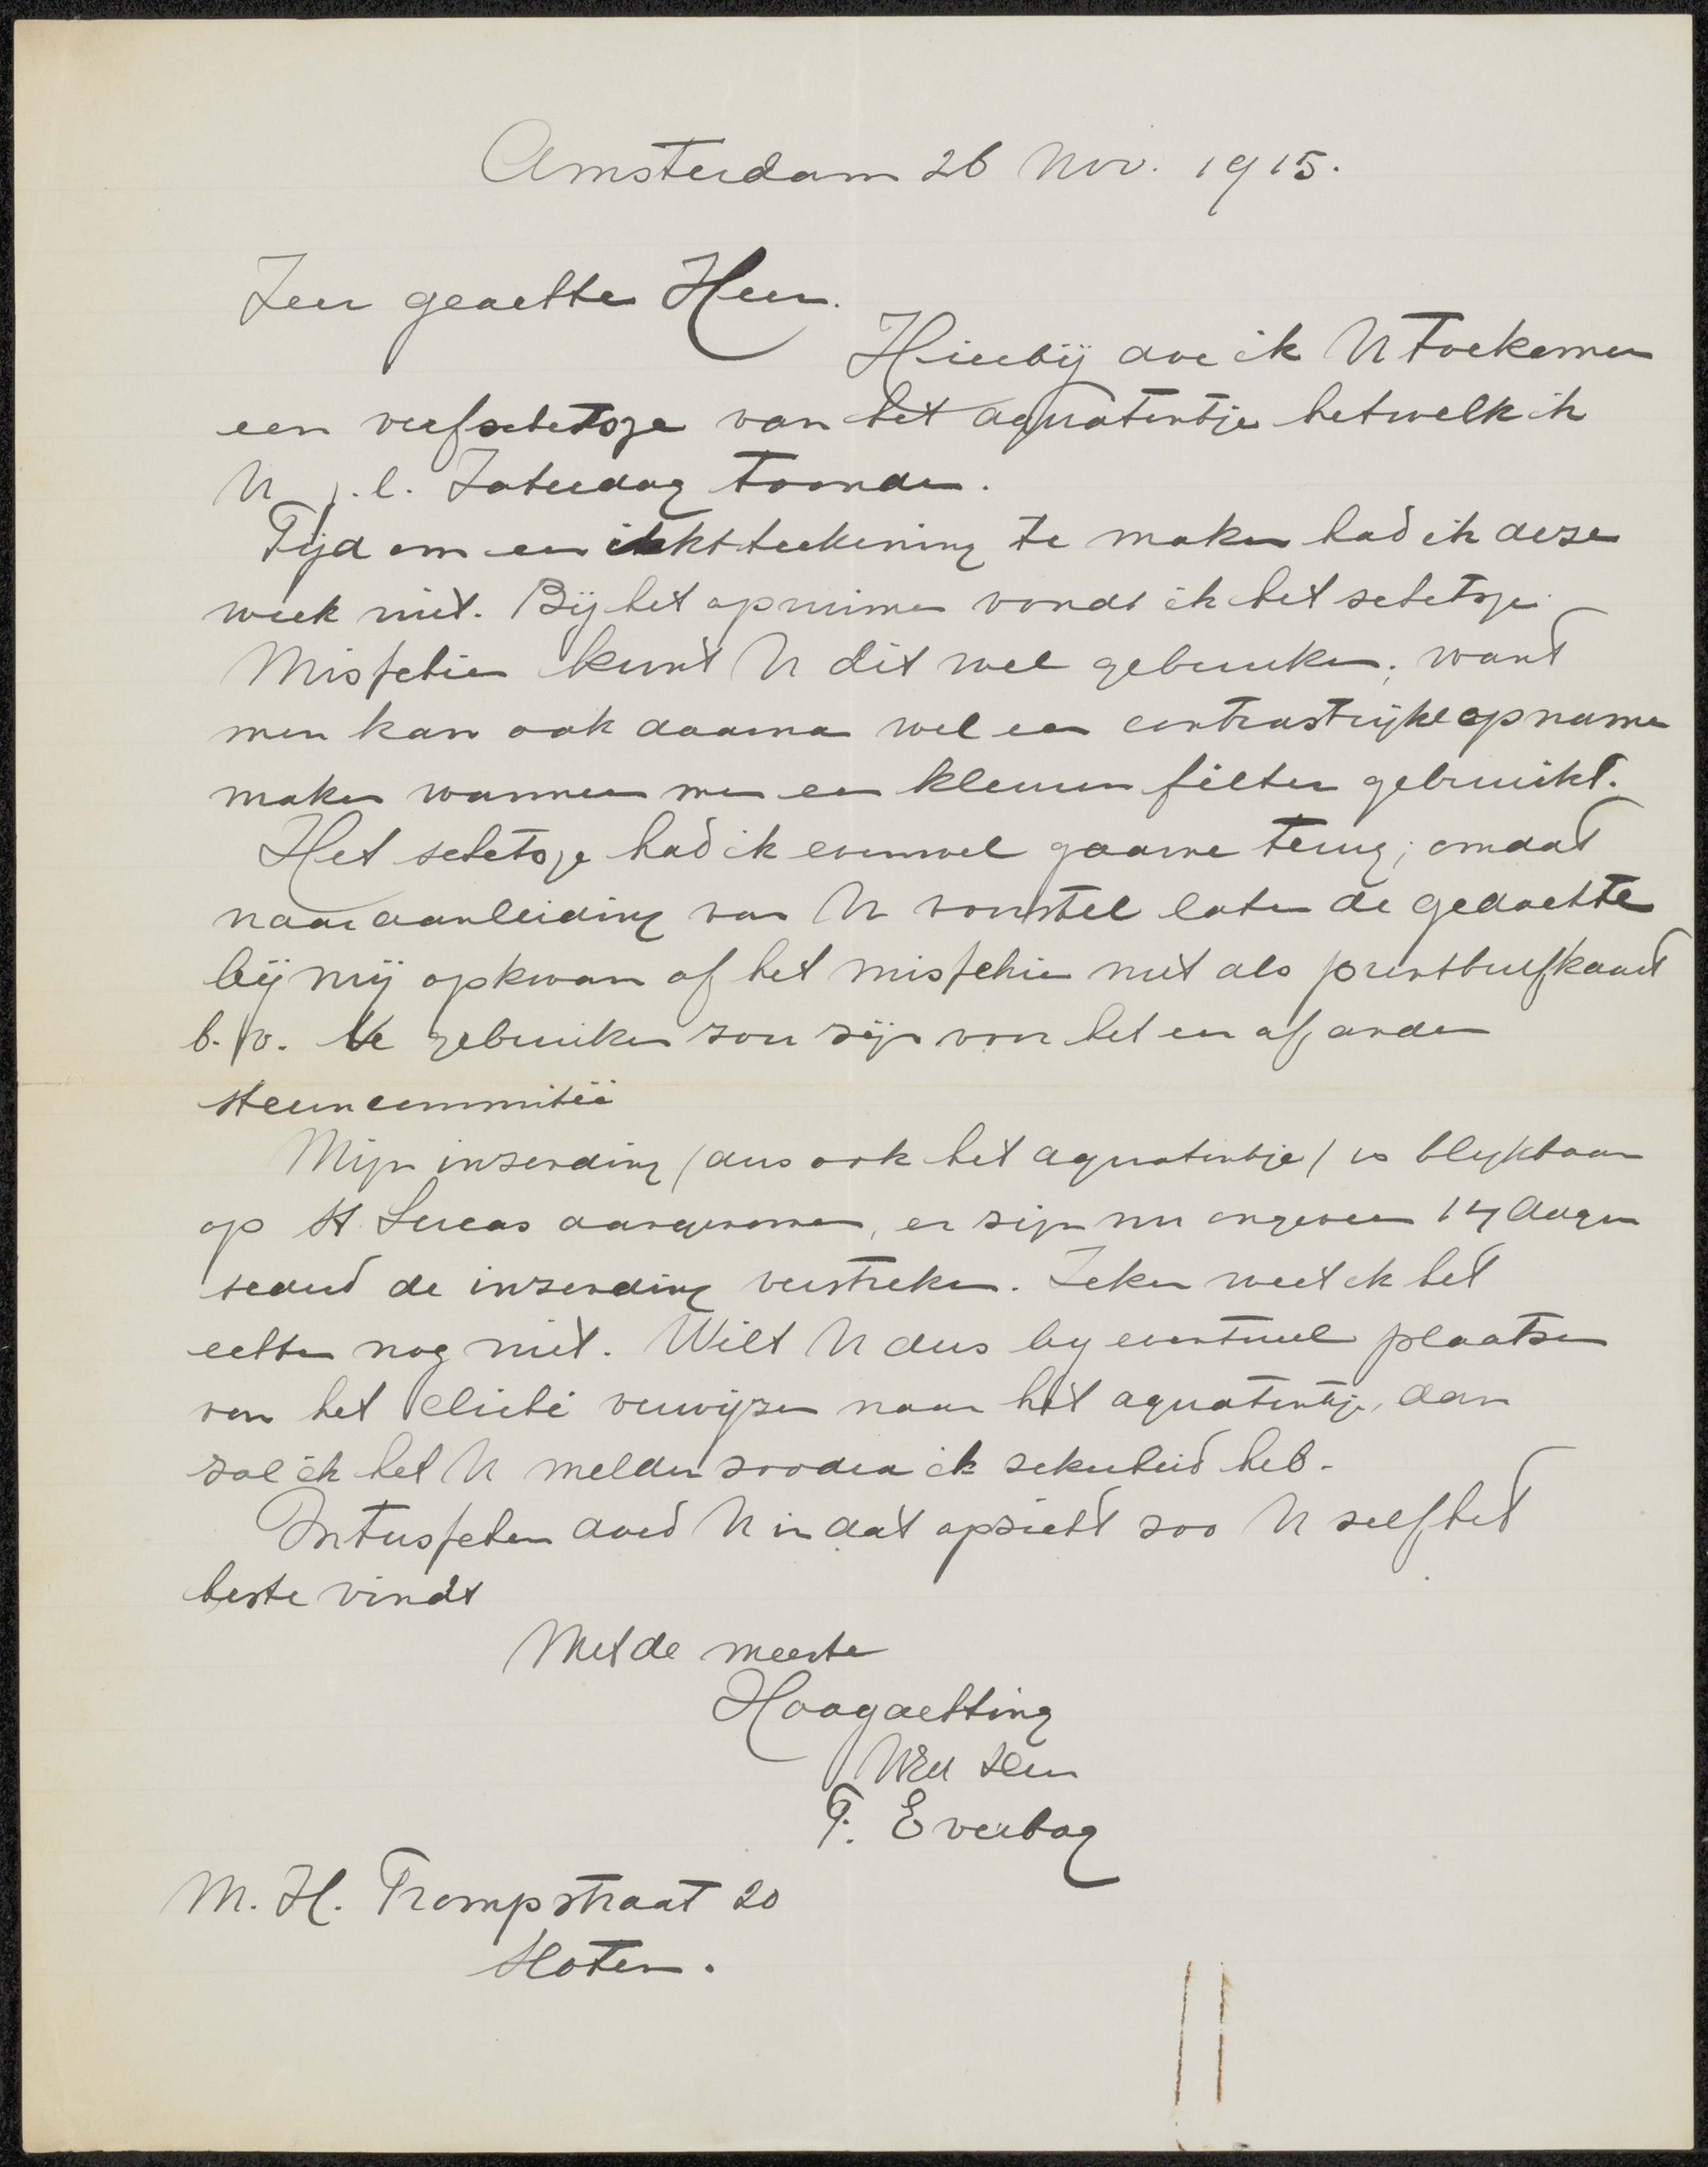 Amsterdam 26 Nov. 1915.
Zeer geachte Heer.
Hierbij doe ik U toekomen
een verfschetsje van het aquatintje hetwelk ik
U j.l. Zaterdag toonde.
Tijd om een inktteekening te maken had ik deze
week niet. Bij het opruimen vondt ik het schetsje.
Misschien kunt U dit wel gebruiken; want
men kan ook daarna wel een contrastrijke opname
maken wanneer men een kleuren filter gebruikt.
Het schetsje had ik evenwel gaarne terug; omdat
naar aanleiding van U voorstel later de gedachte
bij mij opkwam of het misschien niet als prentbriefkaart
b.v. te gebruiken zou zijn voor het een of ander
steuncommiteé
Mijn inzending (dus ook het aquatintje) is blijkbaar
op St Lucas aangenomen, er zijn nu ongeveer 14 dagen
sedert de inzending verstreken. Zeker weet ik het
echter nog niet. Wilt U dus by eventueel plaatsen
van het cliché verwijzen naar het aquatintje, dan
zal ik het U melden zoodra ik zekerheid heb.
Intusschen doed U in dat opzicht zoo U zelf het
beste vindt
Met de meeste
Hoogachting
Uw dien
F. Everbag
M. H. Trompstraat 20
Sloten.